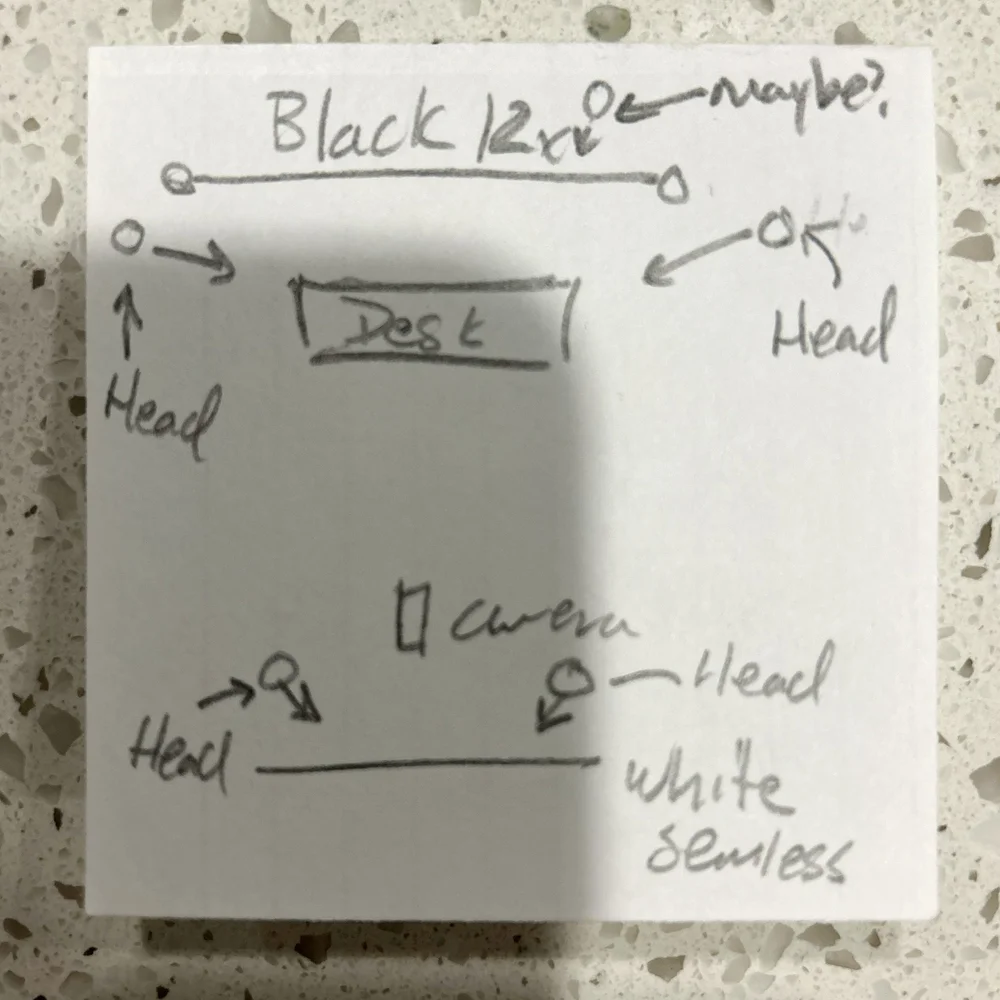 Maybe?
Black 12x
Head
Desk
Head
Camera
Head
Head
White
Semless